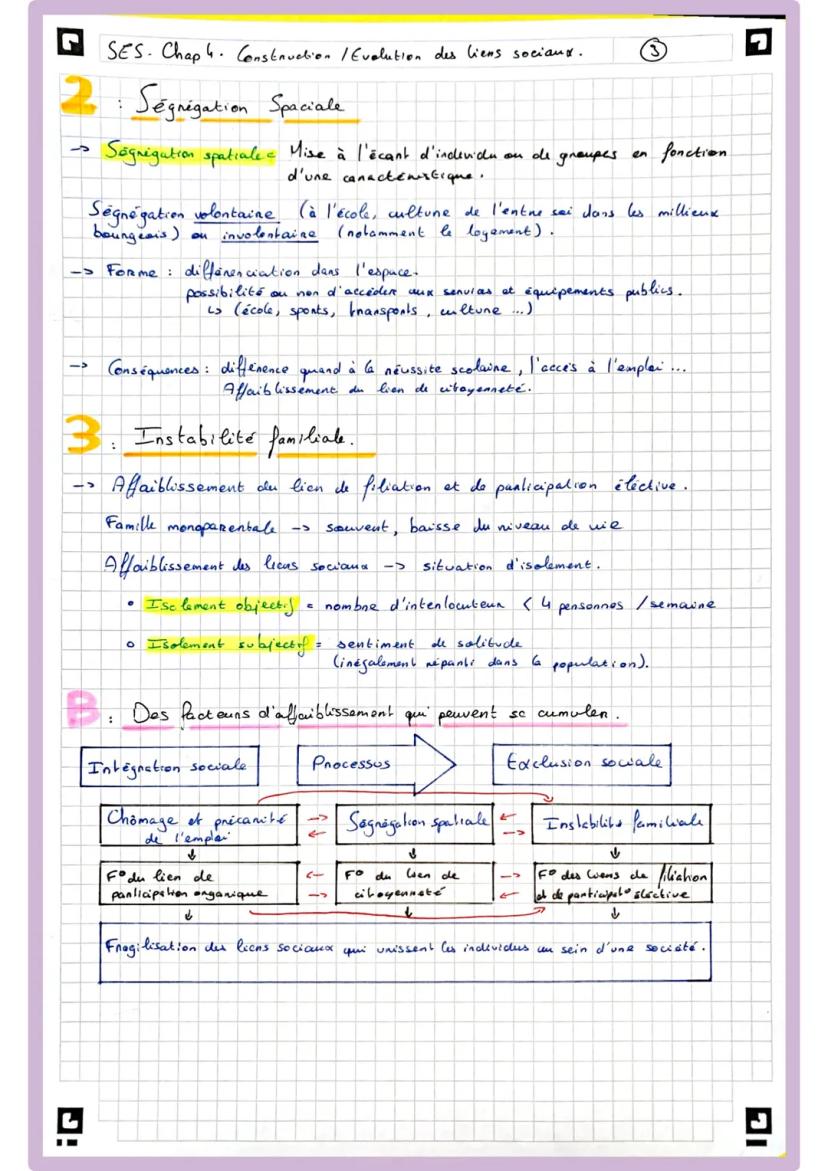 SES. Chap 4. Construction / Evolution des liens sociaux. 3
2 : Ségrégation Spaciale
-> Ségrégation spatiale = Mise à l'écart d'individu ou de groupes en fonction
d'une caractéristique.
Ségrégation volontaire (à l'école, culture de l'entre soi dans les millieux
bourgeois) ou involontaire (notamment le logement).
-> Forme : différenciation dans l'espace.
possibilité ou non d'accéder aux services et équipements publics.
↳ (école, sports, transports, culture ...)
-> Conséquences : différence quand à la réussite scolaire, l'accès à l'emploi ...
Affaiblissement du lien de citoyenneté.
3 : Instabilité familiale.
-> Affaiblissement du lien de filiation et de participation éléctive.
Famille monoparentale -> souvent, baisse du niveau de vie
Affaiblissement des liens sociaux -> situation d'isolement.
• Isolement objectif = nombre d'interlocuteur < 4 personnes / semaine
○ Isolement subjectif = sentiment de solitude
(inégalement réparti dans la population).
B : Des facteurs d'affaiblissement qui peuvent se cumuler.
Intégration sociale Processus Exclusion sociale
Chômage et précarité -> <- Ségrégation spatiale <- -> Instabilité familiale
de l'emploi
↓ ↓ ↓
F° du lien de <- F° du lien de -> F° des liens de filiation
participation organique -> citoyenneté <- et de participat° éléctive
↓ ↓ ↓
Fragilisation des liens sociaux qui unissent les individus au sein d'une société.